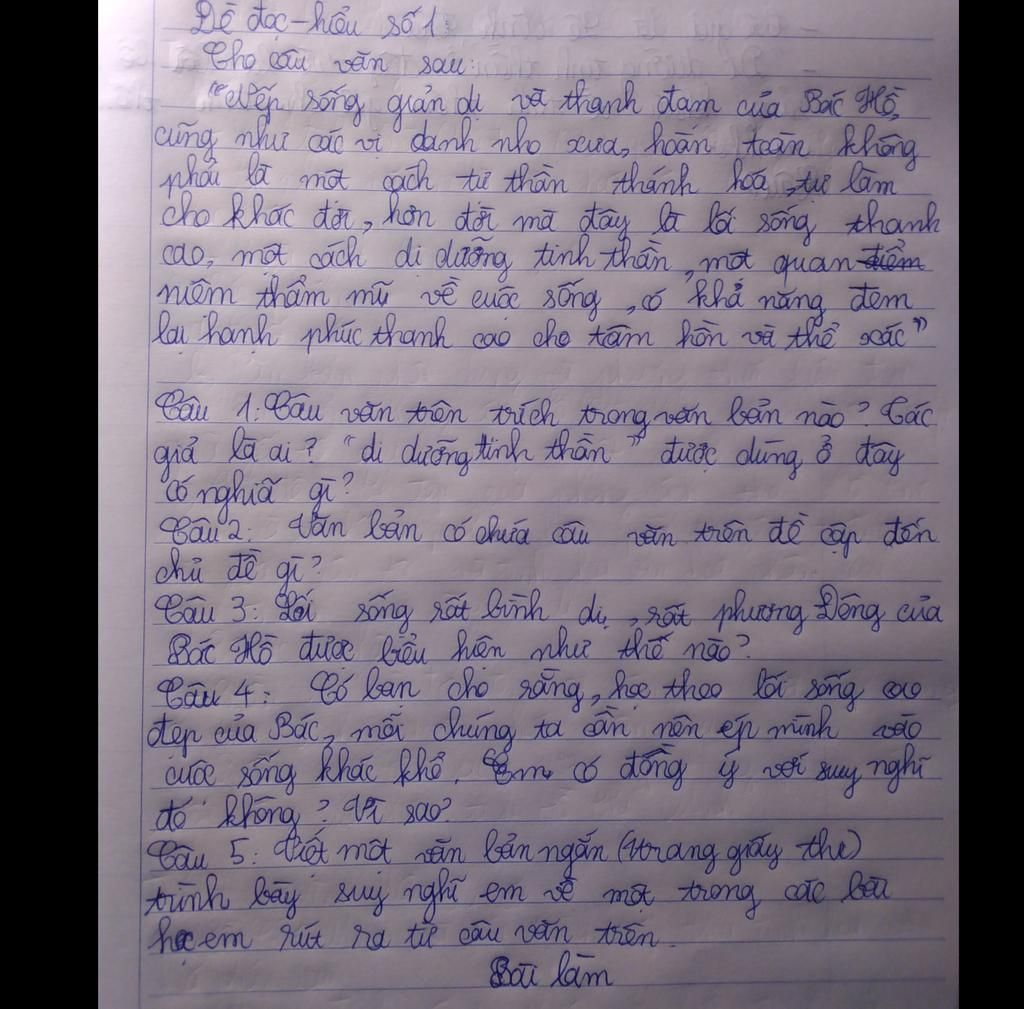 Đề đọc-hiểu số 1:
Cho câu văn sau:
"Nếp sống giản dị và thanh đạm của Bác Hồ,
cũng như các vị danh nho xưa, hoàn toàn không
phải là một cách tự thần thánh hoá, tự làm
cho khác đời, hơn đời mà đây là lối sống thanh
cao, một cách di dưỡng tinh thần, một quan điểm
niệm thẩm mỹ về cuộc sống, có khả năng đem
lại hạnh phúc thanh cao cho tâm hồn và thể xác"
Câu 1: Câu văn trên trích trong văn bản nào? Tác
giả là ai? "di dưỡng tinh thần" được dùng ở đây
có nghĩa gì?
Câu 2: Văn bản có chứa câu văn trên đề cập đến
chủ đề gì?
Câu 3: Lối sống rất bình dị, rất phương Đông của
Bác Hồ được biểu hiện như thế nào?
Câu 4: Có bạn cho rằng, học theo lối sống cao
đẹp của Bác, mỗi chúng ta cần nên ép mình vào
cuộc sống khắc khổ. Em có đồng ý với suy nghĩ
đó không? Vì sao?
Câu 5: Viết một văn bản ngắn (trang giấy thi)
trình bày suy nghĩ em về một trong các bài
học em rút ra từ câu văn trên.
Bài làm